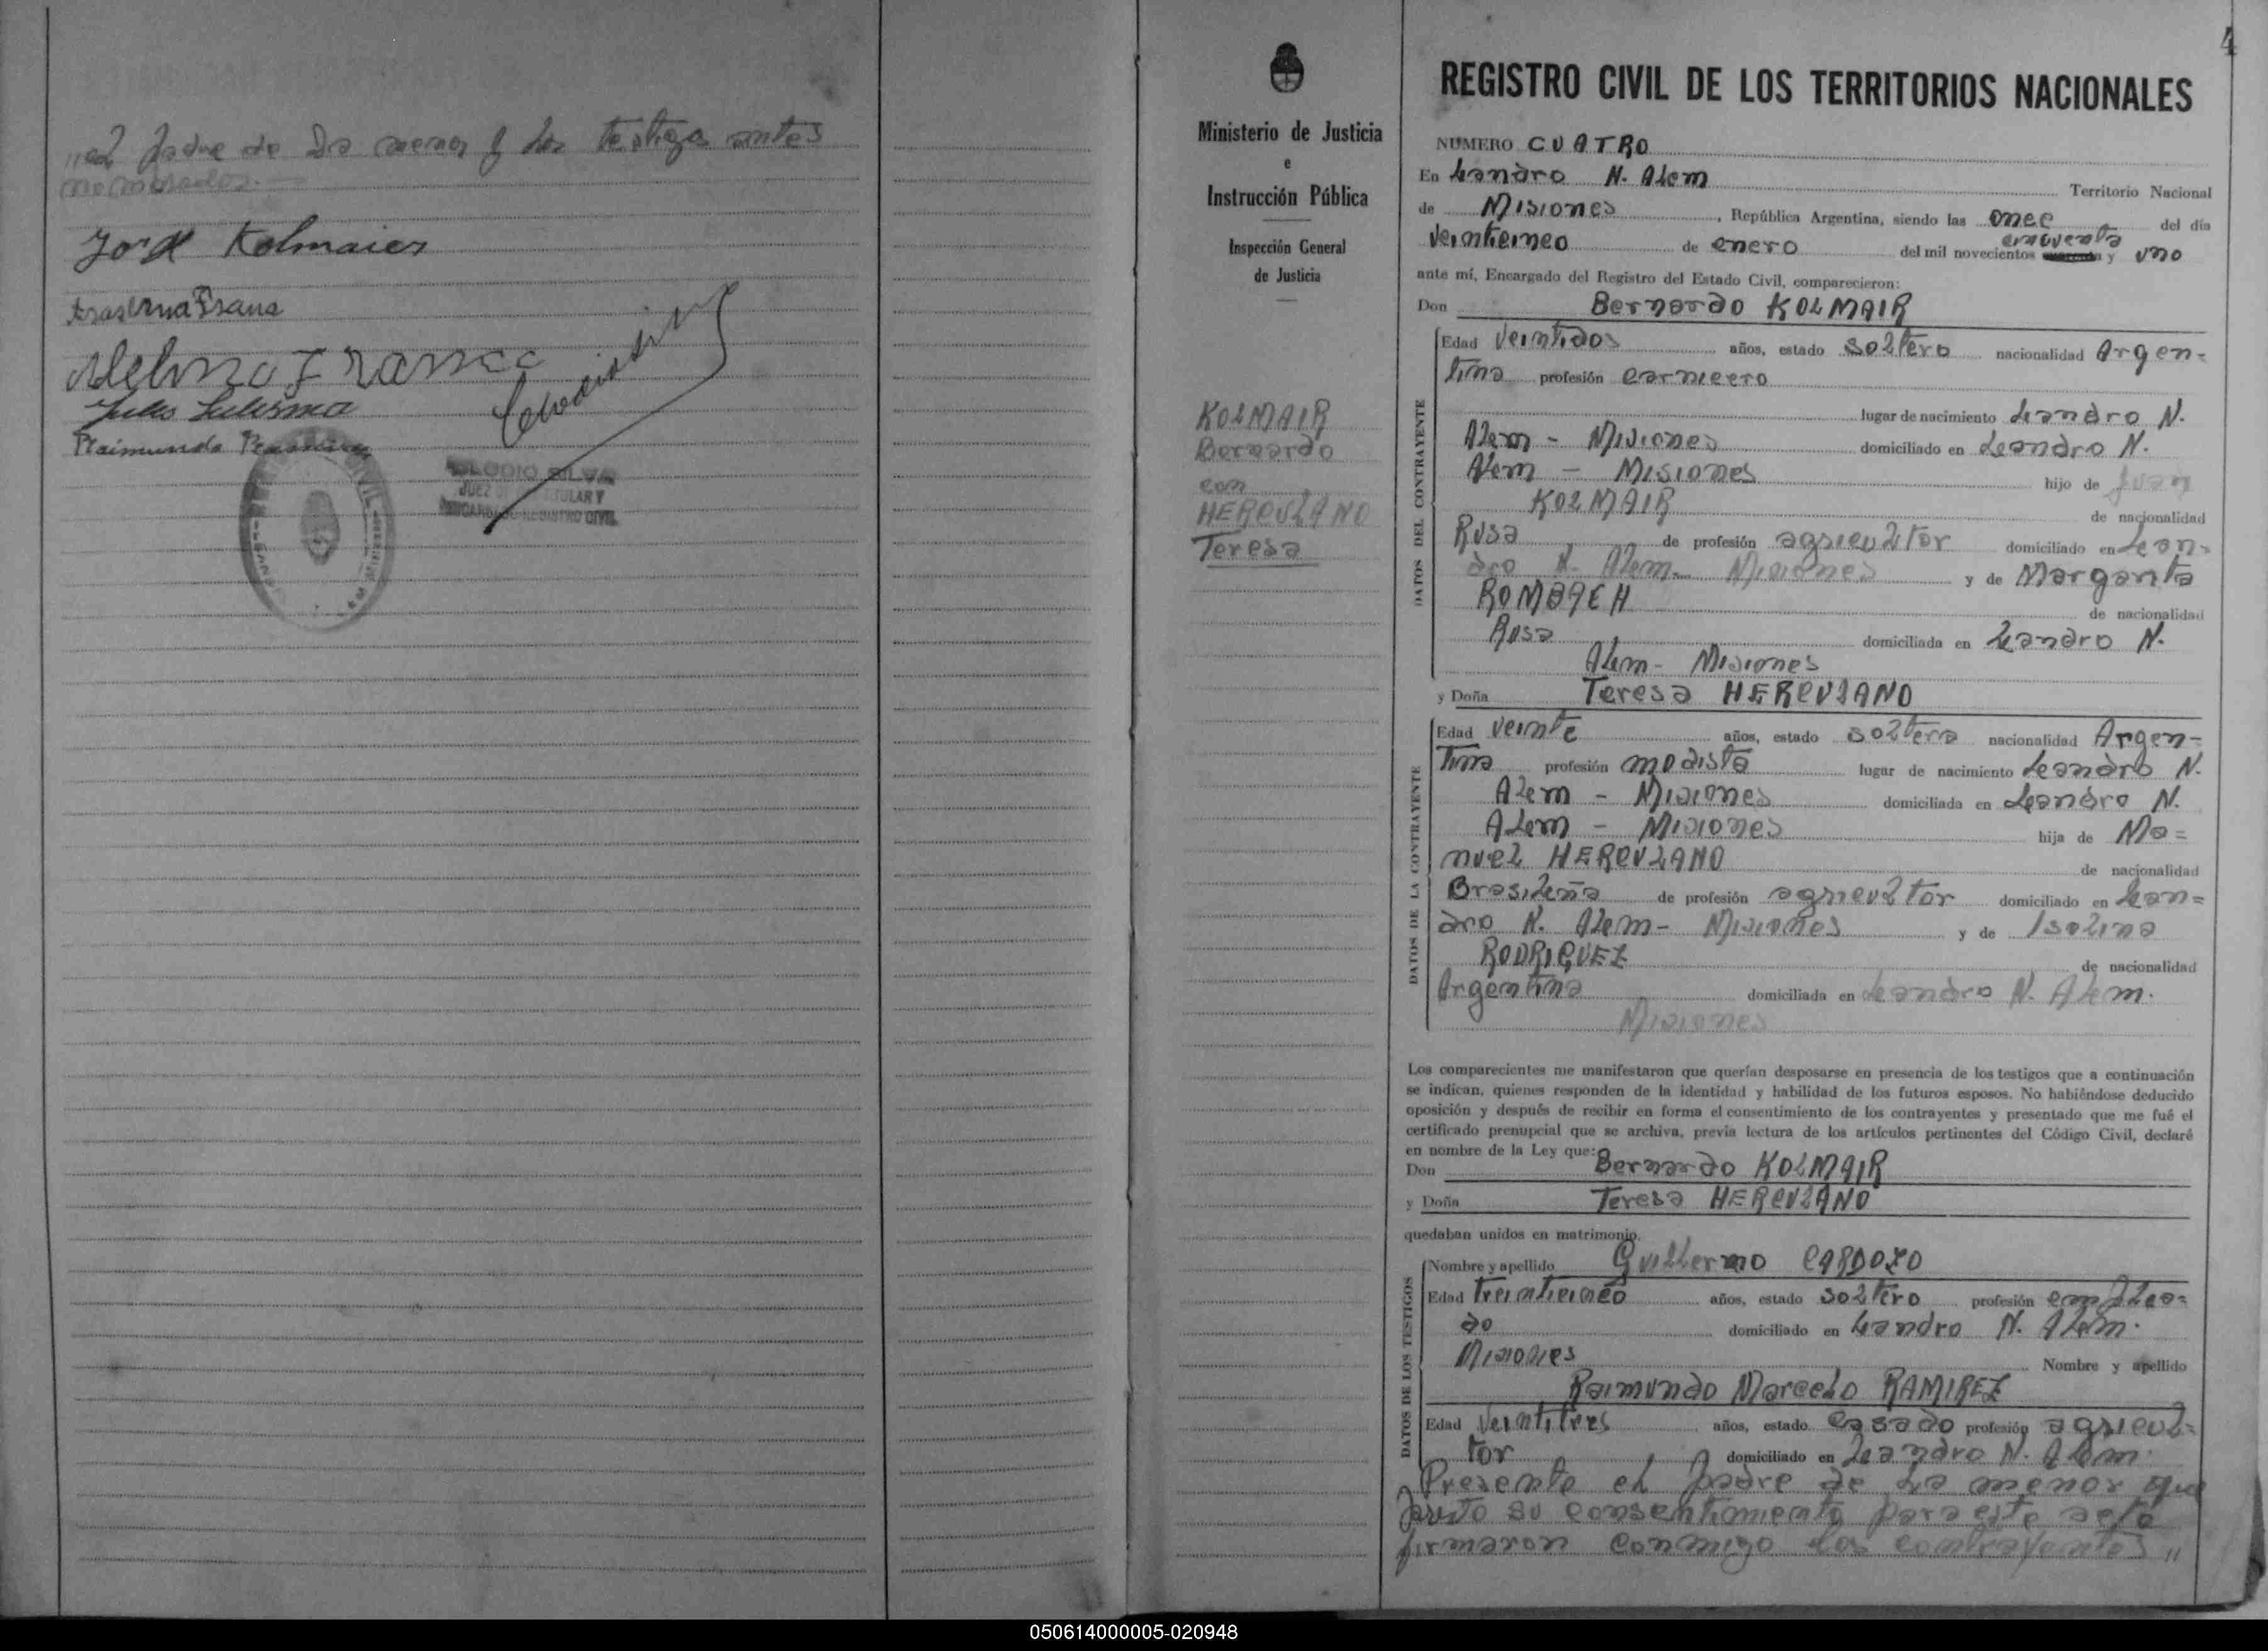 "el padre de la menor y los testigos antes
nombrados.—
Jorge Kolmaier
Franz
Raimundo Ramirez
CLODIO SILVA
JUEZ DE TITULAR Y
ENCARGADO REGISTRO CIVIL
4
Ministerio de Justicia
e
Instrucción Pública
Inspección General
de Justicia
KOLMAIR
Bernardo
con
HERCULANO
Teresa
REGISTRO CIVIL DE LOS TERRITORIOS NACIONALES
NUMERO CUATRO
En Leandro N. Alem Territorio Nacional
de Misiones, República Argentina, siendo las once del día
veinticinco de enero del mil novecientos cincuenta y uno
ante mí, Encargado del Registro del Estado Civil, comparecieron:
Don Bernardo KOLMAIR
DATOS DEL CONTRAYENTE
Edad veintidos años, estado soltero nacionalidad Argen-
tina profesión carnicero
lugar de nacimiento Leandro N.
Alem - Misiones domiciliado en Leandro N.
Alem - Misiones hijo de Juan
KOLMAIR de nacionalidad
Rusa de profesión agricultor domiciliado en Lean-
dro N. Alem - Misiones y de Margarita
ROMBACH de nacionalidad
Rusa domiciliada en Leandro N.
Alem - Misiones
y Doña Teresa HERCULANO
DATOS DE LA CONTRAYENTE
Edad veinte años, estado soltera nacionalidad Argen-
tina profesión modista lugar de nacimiento Leandro N.
Alem - Misiones domiciliada en Leandro N.
Alem - Misiones hija de Ma=
nuel HERCULANO de nacionalidad
Brasileña de profesión agricultor domiciliado en Lean=
dro N. Alem - Misiones y de Isolina
RODRIGUEZ de nacionalidad
Argentina domiciliada en Leandro N. Alem.
Misiones
Los comparecientes me manifestaron que querían desposarse en presencia de los testigos que a continuación
se indican, quienes responden de la identidad y habilidad de los futuros esposos. No habiéndose deducido
oposición y después de recibir en forma el consentimiento de los contrayentes y presentado que me fué el
certificado prenupcial que se archiva, previa lectura de los artículos pertinentes del Código Civil, declaré
en nombre de la Ley que:
Don Bernardo KOLMAIR
y Doña Teresa HERCULANO
quedaban unidos en matrimonio.
DATOS DE LOS TESTIGOS
Nombre y apellido Guillermo CARDOZO
Edad treinticinco años, estado soltero profesión emplea=
do domiciliado en Leandro N. Alem.
Misiones Nombre y apellido
Raimundo Marcelo RAMIREZ
Edad veintitres años, estado casado profesión agricul=
tor domiciliado en Leandro N. Alem.
Presente el padre de la menor que
presto su consentimiento para este acto
firmaron conmigo los contrayentes "
050614000005-020948